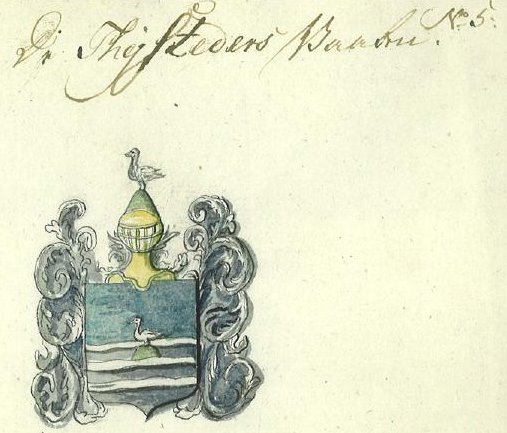 De Thysteders Vaaben. No 5.